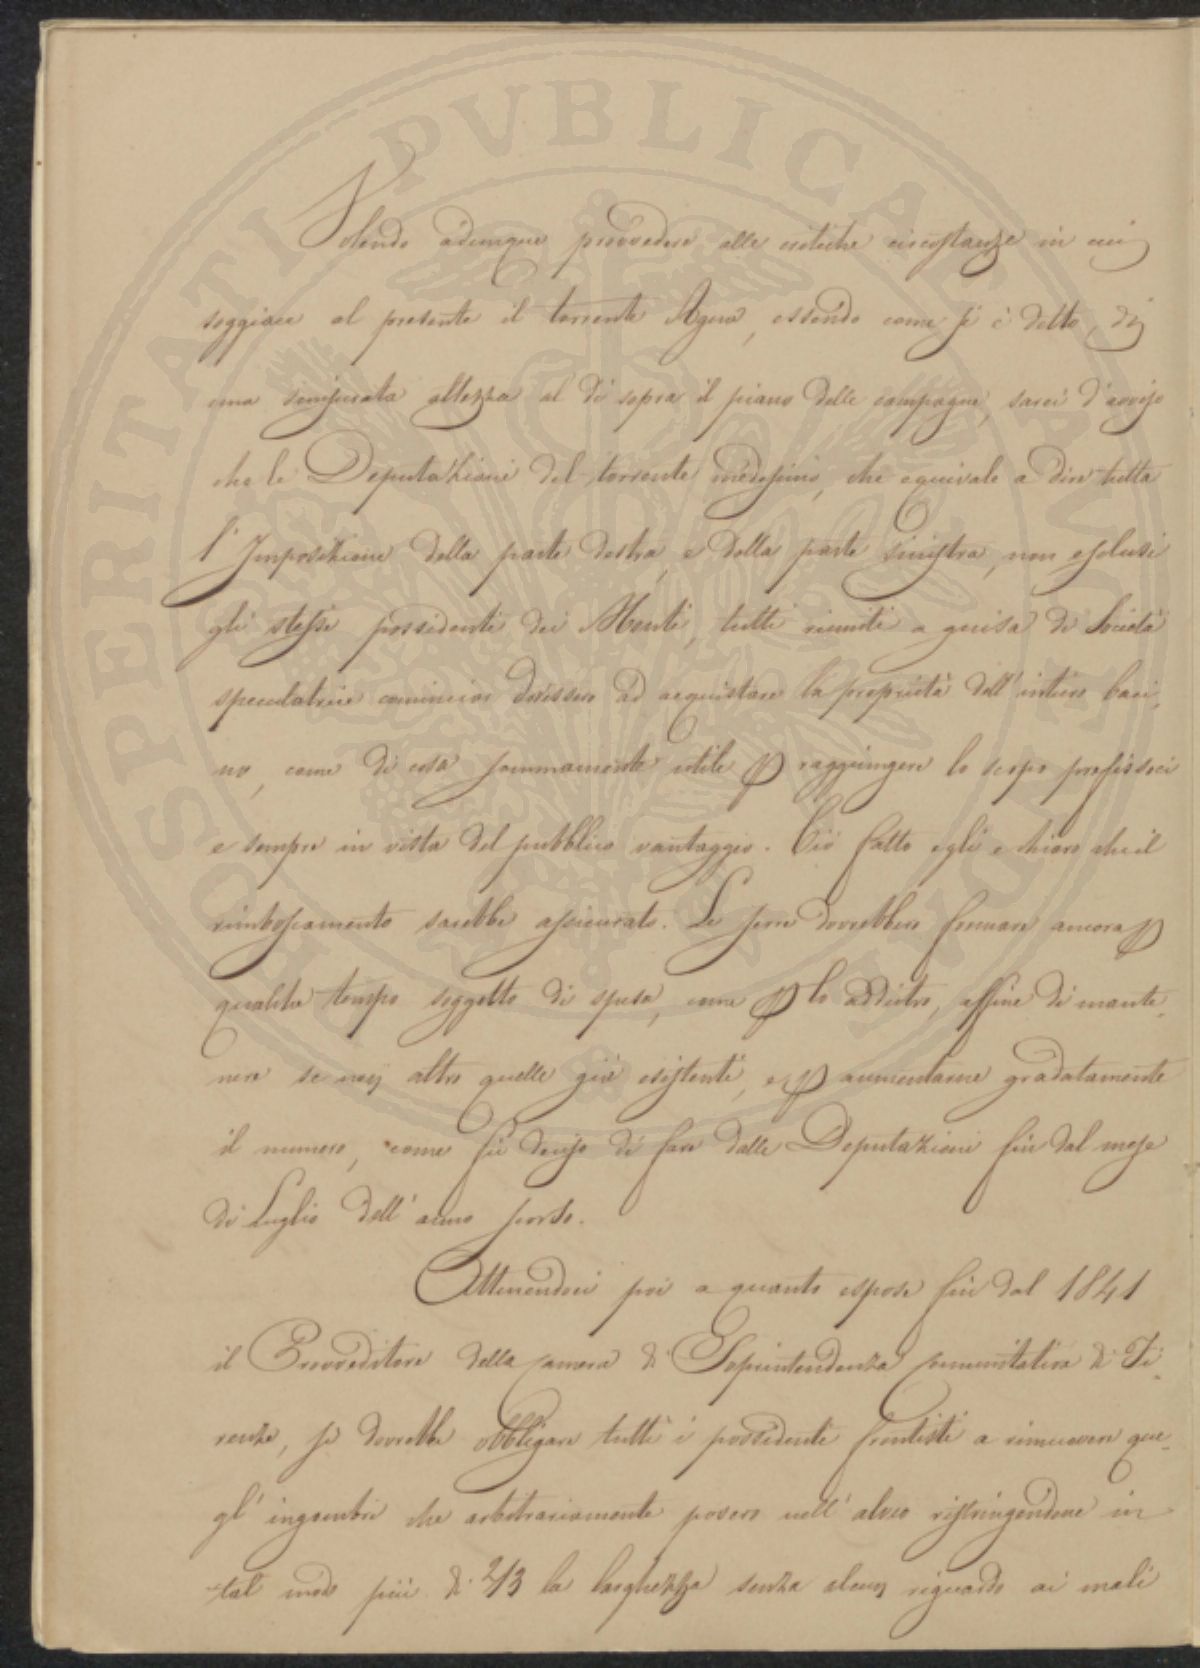 PROSPERITATI PVBLICAE AVGENDAE
Volendo adunque provvedere alle critiche circostanze in cui
soggiace al presente il torrente Agna, essendo come si è detto, di
una smisurata altezza al di sopra il piano delle campagne, sarei d'avviso
che le Deputazioni del torrente medesimo, che equivale a dire tutta
l'Imposizione della parte destra, e della parte sinistra, non esclusi
gli stessi possidenti dei Monti, tutti riuniti a guisa di Società
speculatrice cominciar dovessero ad acquistare la proprietà dell'intiero baci,
no, come di cosa sommamente utile p raggiungere lo scopo prefissoci
e sempre in vista del pubblico vantaggio. Ciò fatto egli è chiaro che il
rimboscamento sarebbe assicurato. Le serre dovrebbero formare ancora p
qualche tempo soggetto di spesa, come p lo addietro, affine di mante,
nere se non altro quelle già esistenti, e p aumentarne gradatamente
il numero, come fù deciso di fare dalle Deputazioni fin dal mese
di Luglio dell'anno scorso.
Attenendoci poi a quanto espose fin dal 1841
il Provveditore della Camera di Soprintendenza comunitativa di Fi,
renze, si dovrebbe obbligare tutti i possidenti frontisti a rimuovere que,
gl'ingombri che arbitrariamente posero nell'alveo ristringendone in
tal modo più di 2/3 la larghezza senza alcun riguardo ai mali